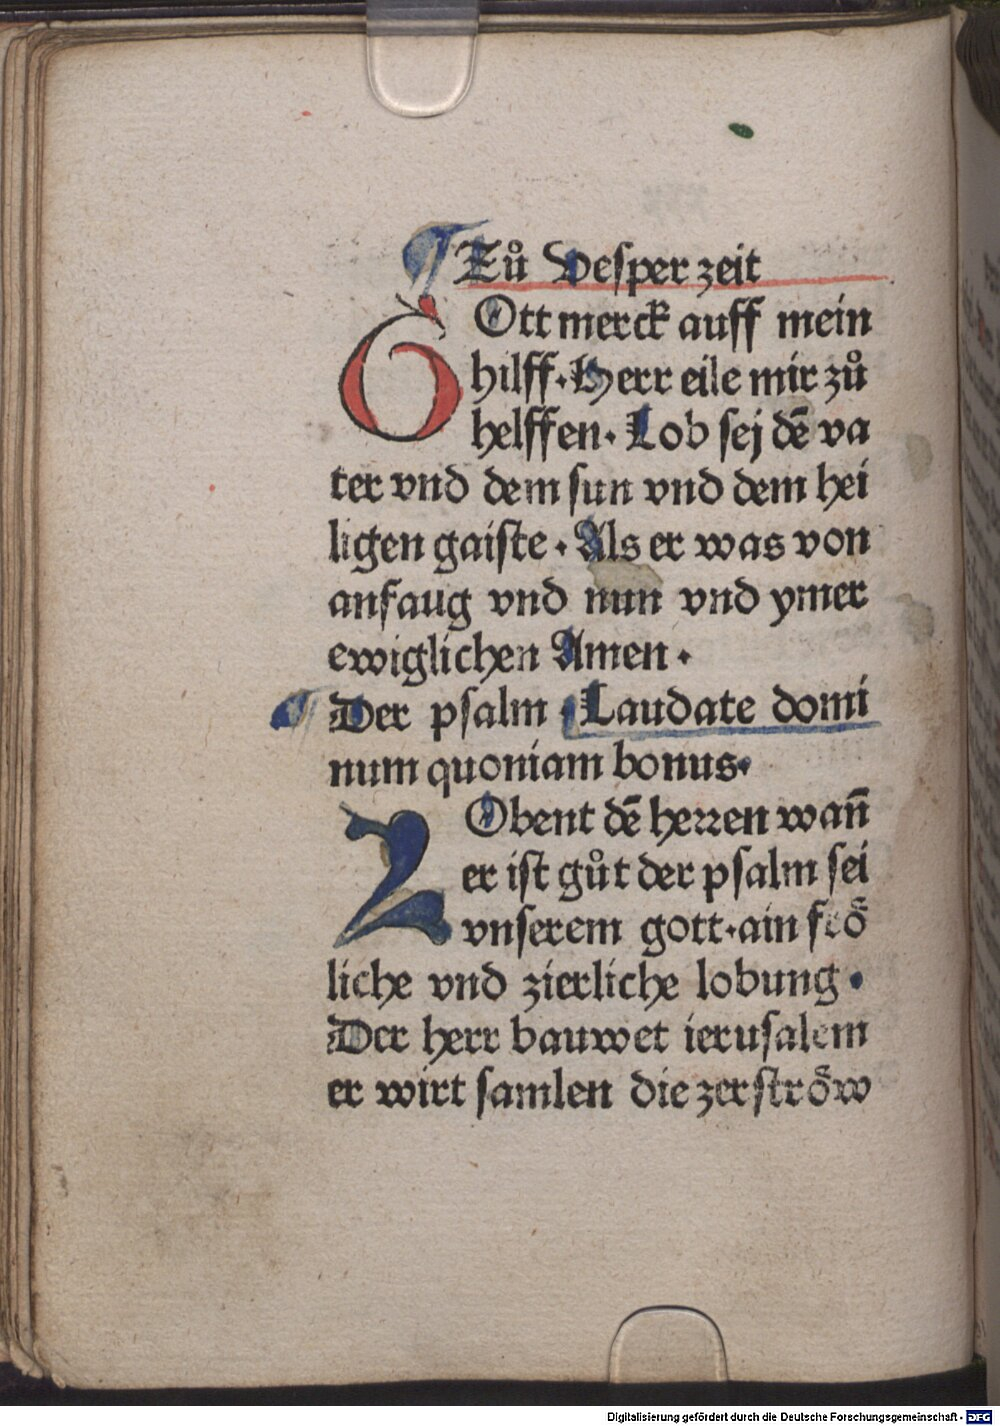 ¶ Zů Vesper zeit
GOtt merck auff mein
hilff. Herr eile mir zů
helffen. Lob sej dē va
ter vnd dem sun vnd dem hei
ligen gaiste. Als er was von
anfaug vnd nun vnd ymer
ewiglichen Amen.
¶ Der psalm Laudate domi
num quoniam bonus.
LObent dē herren wañ
er ist gůt der psalm sei
vnserem gott. ain frö
liche vnd zierliche lobung.
Der herr bauwet ierusalem
er wirt samlen die zerströw
Digitalisierung gefördert durch die Deutsche Forschungsgemeinschaft - DFG